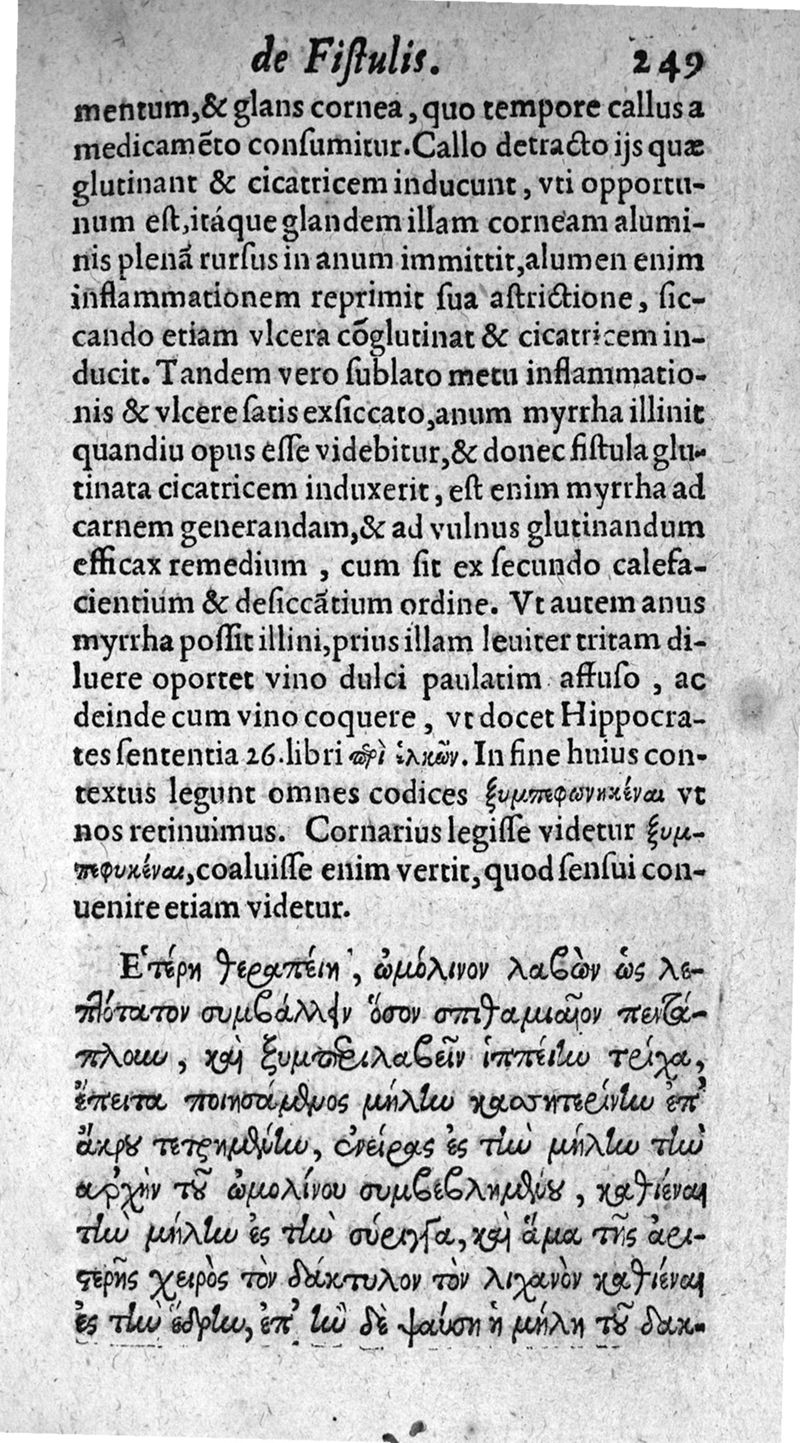 de Fiſtulis. 249
mentum,& glans cornea, quo tempore callus a
medicamẽto conſumitur.Callo detracto ijs quæ
glutinant & cicatricem inducunt, vti opportu-
num eſt,itáque glandem illam corneam alumi-
nis plenã rurſus in anum immittit,alumen enim
inflammationem reprimit ſua aſtrictione, ſic-
cando etiam vlcera cõglutinat & cicatricem in-
ducit. Tandem vero ſublato metu inflammatio-
nis & vlcere ſatis exſiccato,anum myrrha illinit
quandiu opus eſſe videbitur,& donec fiſtula glu-
tinata cicatricem induxerit, eſt enim myrrha ad
carnem generandam,& ad vulnus glutinandum
efficax remedium, cum ſit ex ſecundo calefa-
cientium & deſiccãtium ordine. Vt autem anus
myrrha poſſit illini,prius illam leuiter tritam di-
luere oportet vino dulci paulatim affuſo, ac
deinde cum vino coquere, vt docet Hippocra-
tes ſententia 26.libri περὶ ἑλκῶν. In fine huius con-
textus legunt omnes codices ξυμπεφωνηκέναι vt
nos retinuimus. Cornarius legiſſe videtur ξυμ-
πεφυκέναι,coaluiſſe enim vertit,quod ſenſui con-
uenire etiam videtur.
Ἑτέρη θεραπείη, ὠμόλινον λαβὼν ὡς λε-
πτότατον συμβάλλειν ὅσον σπιθαμιαῖον πεντά-
πλοον, καὶ ξυμπεριλαβεῖν ἱππείην τρίχα,
ἔπειτα ποιησάμενος μήλην κασσιτερίνην ἐπ'
ἄκρου τετρημένην, ἐνείρας ἐς τὴν μήλην τὴν
ἀρχὴν τοῦ ὠμολίνου συμβεβλημένου, καθιέναι
τὴν μήλην ἐς τὴν σύριγγα, καὶ ἅμα τῆς ἀρι-
στερῆς χειρὸς τὸν δάκτυλον τὸν λιχανὸν καθιέναι
ἐς τὴν ἕδρην, ἐπ' ἢν δὲ ψαύσῃ ἡ μήλη τοῦ δακ-